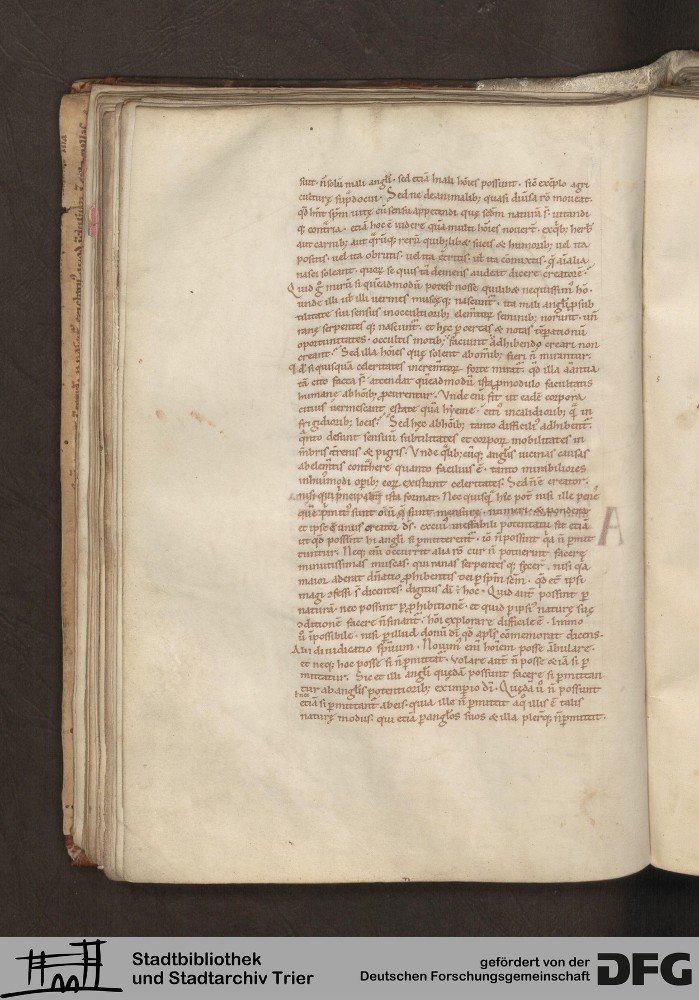 sunt. n̄ solū mali angli. sed etiā mali hoīes possunt. sic̄ exēplo agri
culturę sup̄ docui. Sed ne de animalib; quasi diūsa rō moueat.
qd hn̄t sp̄m uitę cū sensu appetendi quę scdm̄ naturā s̄. uitandi
q; cont̄ria. etiā hoc ē uidere quā multi hoīes nouer̄t. ex qb; herbis
aut carnib; aut
positis. uel ita obrutis. uel ita
nasci soleant. quoꝝ se quis tā demens audeat dicere creatorē.
Quid g̊ mirū si quēadmodū potest nosse quilibet nequissim' hō.
unde illi ul̄ illi uermes muscęq; nascunt̄. ita mali angli p̱ sub
tilitate sui sensus in occultiorib; elemtoꝝ seminib; norunt. un̄
ranę serpentes q; nascunt̄. et hęc p̱ certas & notas tēperationū
oportunitates. occultis motib; faciunt adhibendo creari non
creant. Sed illa hoīes quę solent ab hoīmib; fieri n̄ mirantur.
Qd̄ si quisquā celeritates incremtoꝝ forte mirat̄. qd illa aīantia
tā cito facta s̄. attendat quēadmodū & ista p̱ modulo facultatis
humanę ab hoīb; p̱curentur. Unde eni fit ut eadē corpora
citius uermescant estate quā hyeme. citi' in calidiorib; quā in
frigidiorib; locis. Sed hęc ab hoīb; tanto difficili' adhibent̄.
quāto desunt sensuū subtilitates et corpoꝝ mobilitates in
mēbris t̄renis & pigris. Unde qlib;cūq; anglis uicinas causas
ab elem̄tis cont̄here quanto facilius ē. tanto mirabiliores
in hui'modi opib; eoꝝ existunt celeritates. Sed n̄ ē creator.
nisi qui p̱ncipalit̄ ista format. Nec quisq̄ hęc pot̄ nisi ille penes
quē p̱mitus sunt oīm q̄ sunt mensurę. numeri & pondera.
et ipse ē unus creator ds̄. ex cui' ineffabili potentatu fit etiā
ut qd possint hi angli si p̱mitterent̄. iō n̄ possint qa n̄ p̱mit
tuntur. Neq; eni occurrit alia rō cur n̄ potuerint facere
minutissimas muscas. qui ranas serpentes q; fecer̄. nisi q̄a
maior aderat dn̄atio p̱hibentis dei p̱ sp̄m scm̄. qd et ipsi
magi cfessi s̄ dicentes. digitus dī ē hoc. Quid aut̄ possint p̱
naturā. nec possint p̱ p̱hibitionē. et quid p̱ ipsi' naturę suę
cditionē facere n̄ sinant̄. hoī explorare difficile ē. Immo
ů īpossibile. nisi p̱ illud donū dī qd apls̄ cōmemorat dicens.
Alii diiudicatio sp̄ituum. Nouim' eni hoīem posse ābulare.
et neq; hoc posse si n̄ p̱mittat̄. uolare aut̄ n̄ posse etiā si p̱
mittatur. Sic et illi angli quędā possunt facere si p̱mittan
tur ab anglis potentiorib; ex imp̱io dī. Quędā ů n̄ possunt
etiā si p̱mittant̄ ab eis. quia ille n̄ p̱mittit a q̊ illis ē talis
naturę modus. qui etiā p̱ anglos suos & illa plerūq; n̄ p̱mittit.
A
Stadtbibliothek
und Stadtarchiv Trier
gefördert von der
Deutschen Forschungsgemeinschaft
DFG